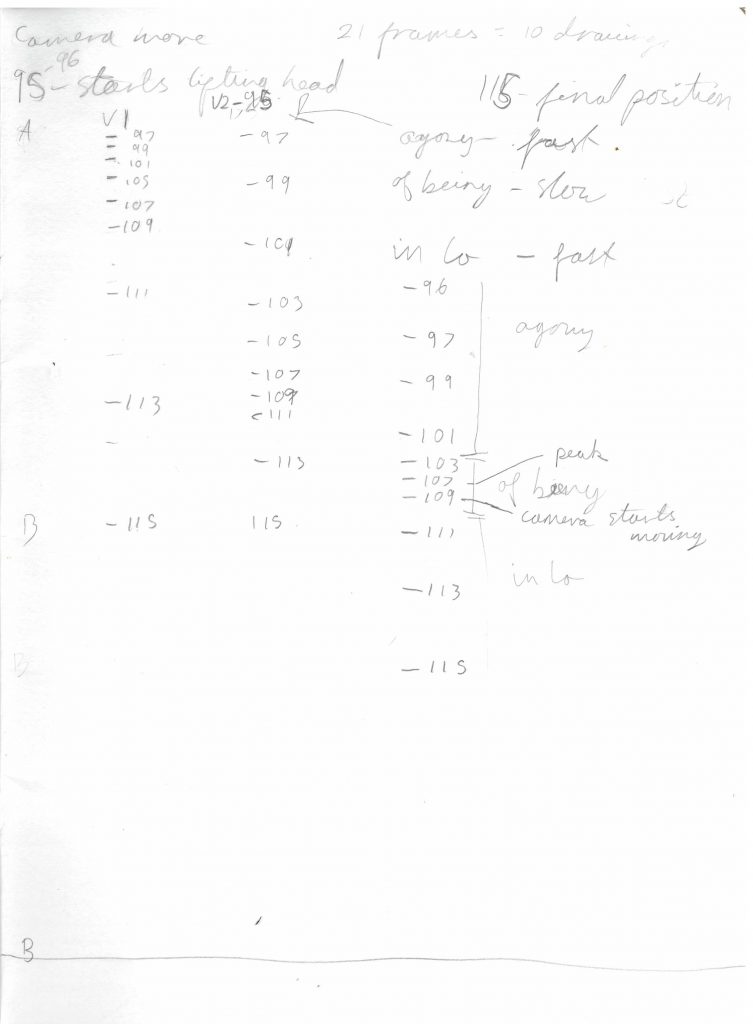 Camera move 21 frames = 10 drawings
96
95 - starts lifting head 115 - final position
V1 V2 - 95
A - 97 - 97 agony - fast
- 99
- 101
- 105 - 99 of being - slow
- 107
- 109
- 101 in Lo - fast
- 96
- 111 - 103
agony
- 105 - 97
- 107 - 99
- 113 - 109
- 111
- 101
- 113 - 103 peak
- 107 of being
- 109 camera starts
B - 115 115 - 111 moving
in Lo
- 113
B
- 115
B